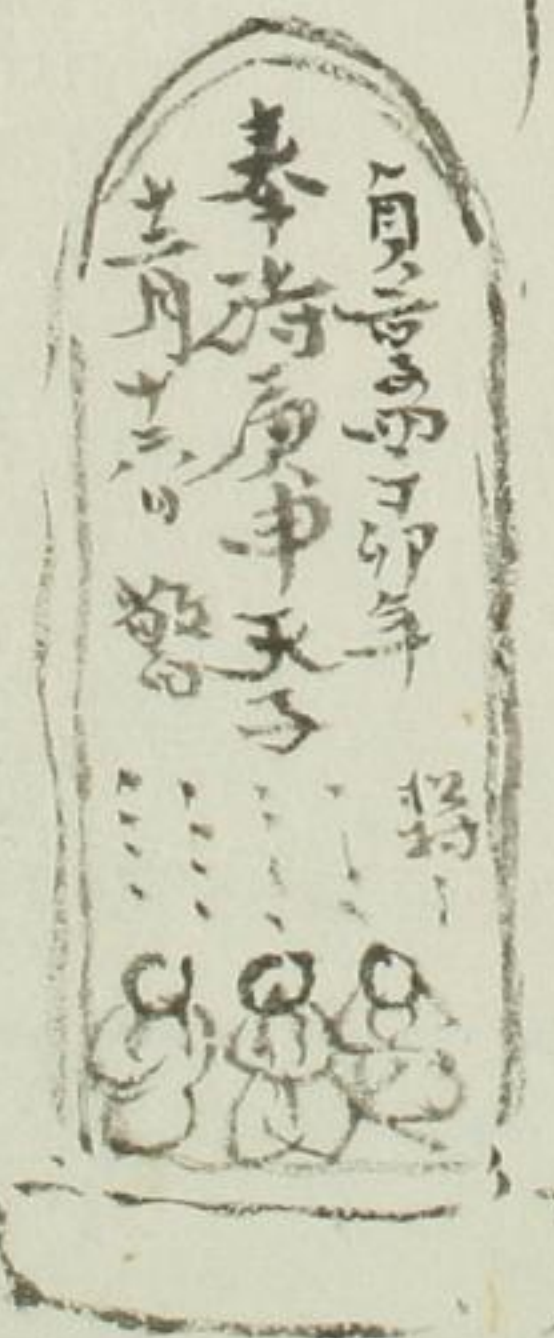 貞享四丁卯年
奉待庚申天子
十二月十六日 敬白